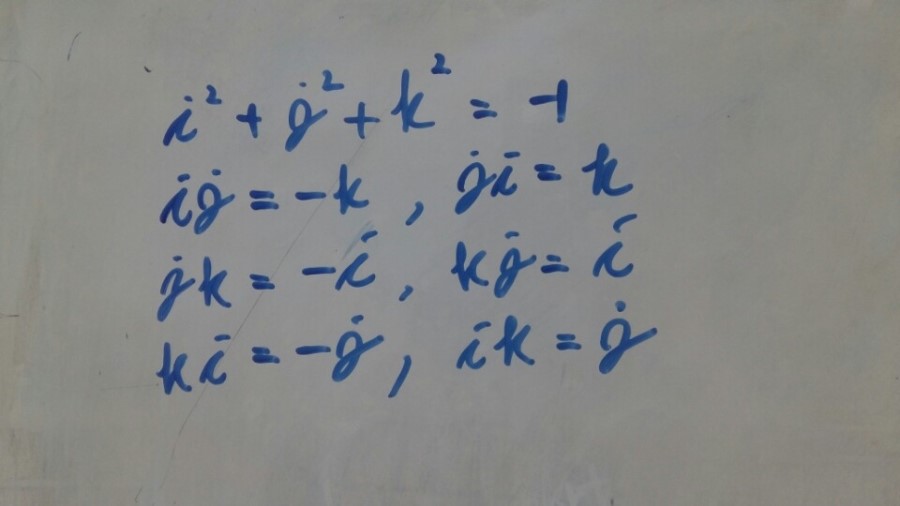 i² + j² + k² = -1
ij = -k , ji = k
jk = -i , kj = i
ki = -j , ik = j